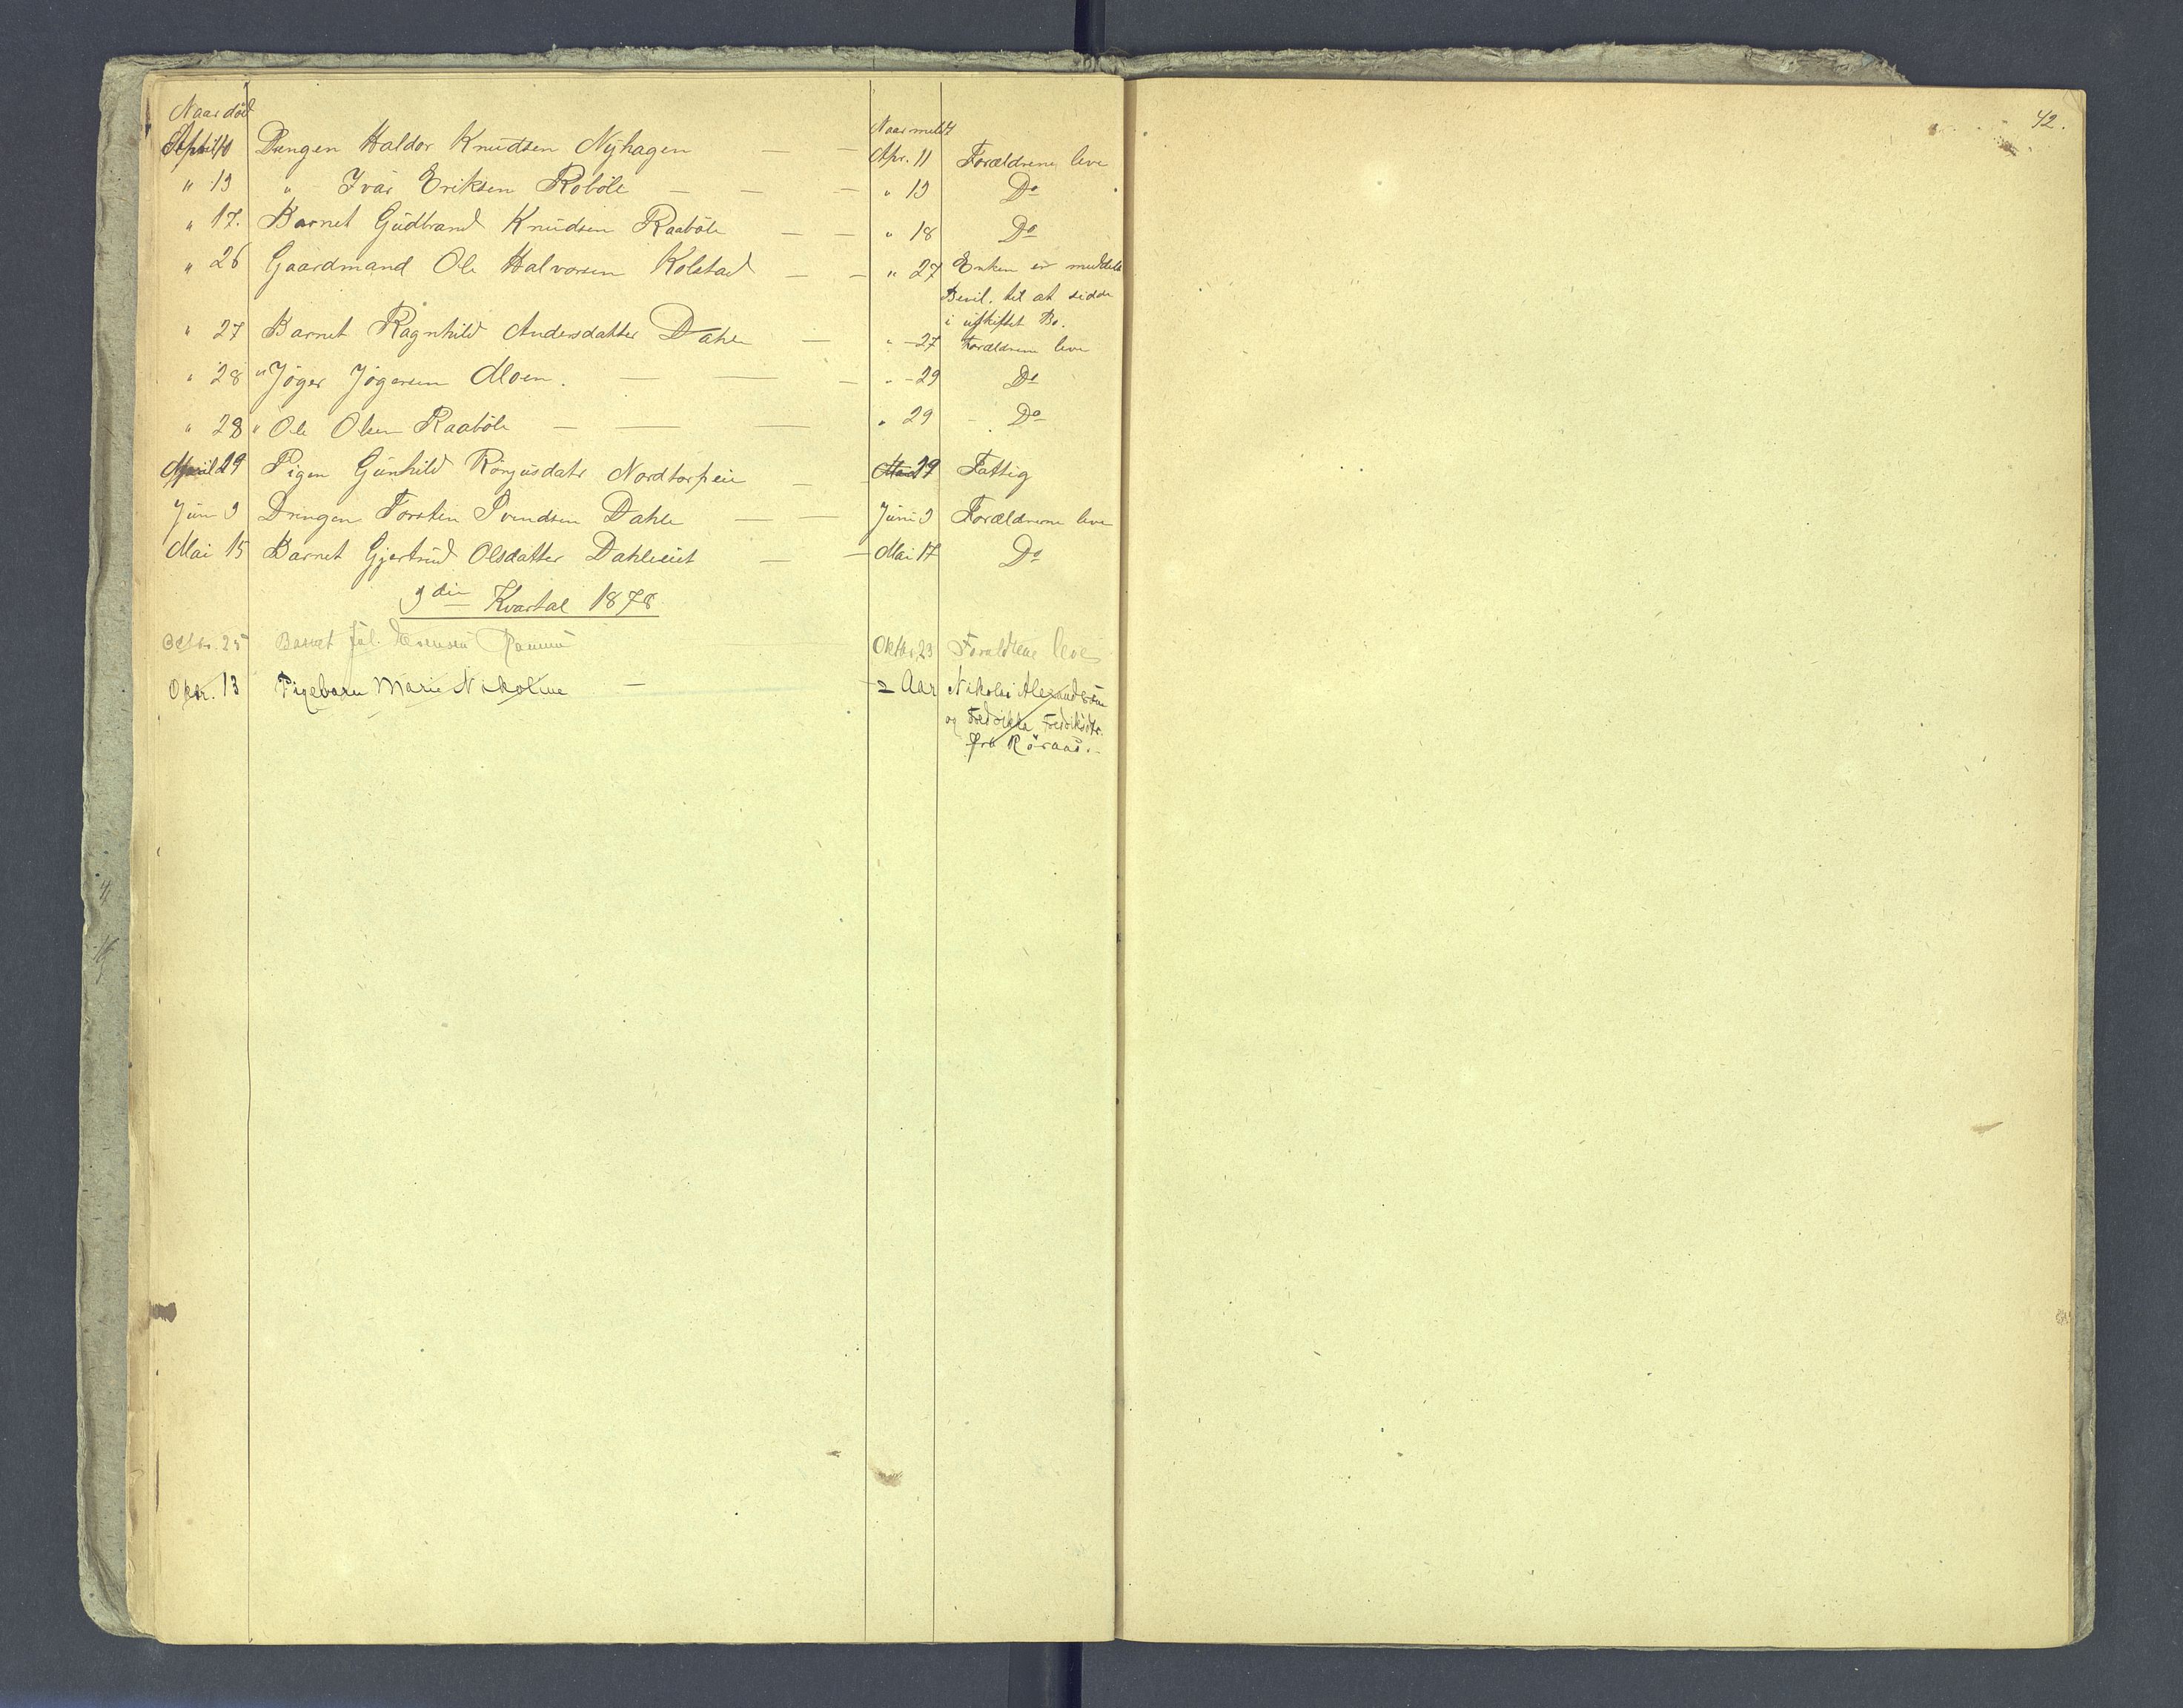 42.
Naar död Naar meldt
April 10 Drengen Haldor Knudsen Nÿhagen — — Apr. 11 Forældrene leve
" 13 " Ivar Eriksen Roböle — — — " 13 Do
" 17. Barnet Gudbrand Knudsen Raaböle — — " 18 Do
" 26 Gaardmand Ole Halvorsen Kolstad — — " 27 Enken er meddelt
Bevil. til at sidde
i uskiftet Bo.
" 27 Barnet Ragnhild Andersdatter Dahle — " - 27 Forældrene leve
" 28 " Jøger Jøgersen Moen. — — — " - 29 Do
" 28 " Ole Olsen Raaböle — — — " 29 - Do
April 29 Pigen Gunhild Nordtorpeie — 29 Fattig
Juni 3 Drengen Torsten Svendsen Dahle — — Juni 3 Forældrene leve
Mai 15 Barnet Gjertrud Olsdatter Dahleeiet — — Mai 17 Do
3die Kvartal 1878
25 Barnet Oktbr. 23 Forældrene leve
Oktr. 13 Pigebarn Marie Nikoline — 2 Aar Nikolai Alexandersen
og Fredrikke Fredriksdtr.
fra Röraas.